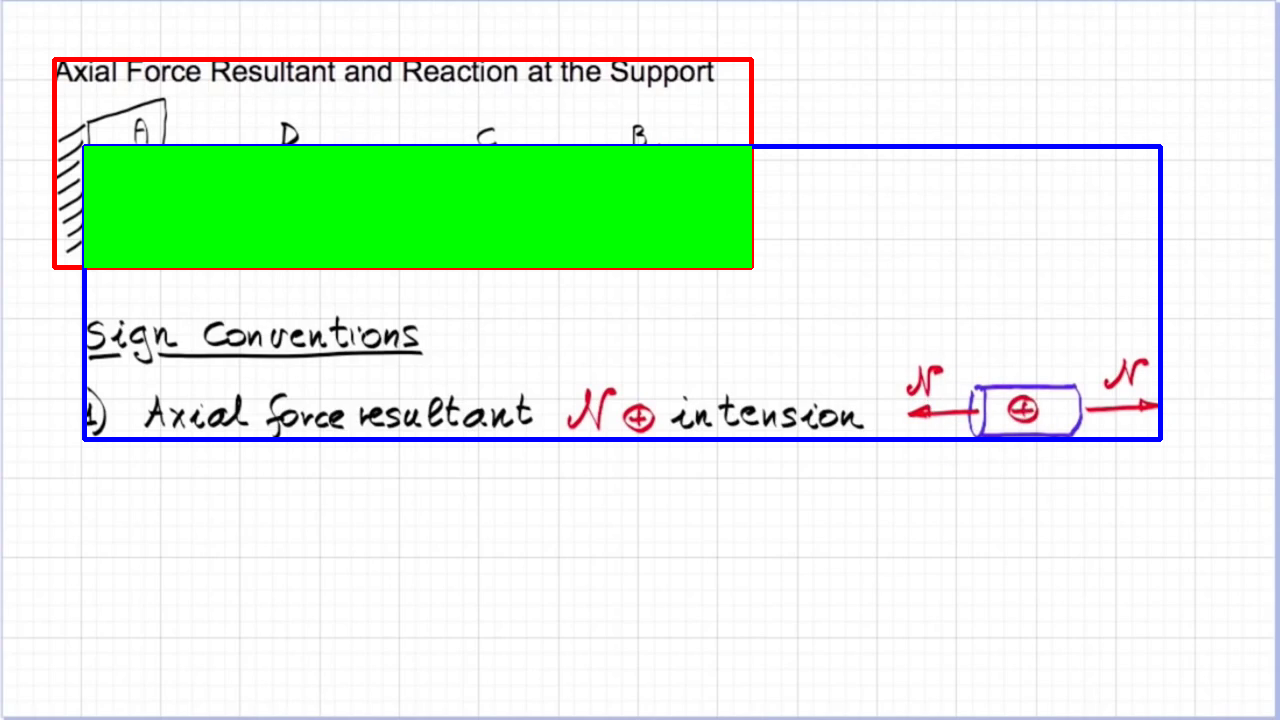 Axial Force Resultant and Reaction at the Support
A D C B
Sign Conventions
1) Axial force resultant N ⊕ in tension N ⊕ N